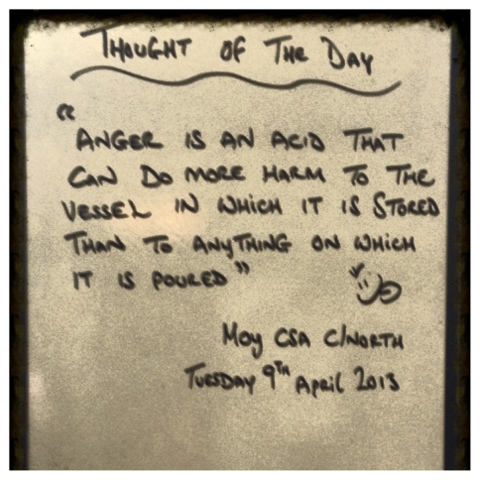 THOUGHT OF THE DAY
"ANGER IS AN ACID THAT
CAN DO MORE HARM TO THE
VESSEL IN WHICH IT IS STORED
THAN TO ANYTHING ON WHICH
IT IS POURED"
MOY CSA C/NORTH
TUESDAY 9TH APRIL 2013